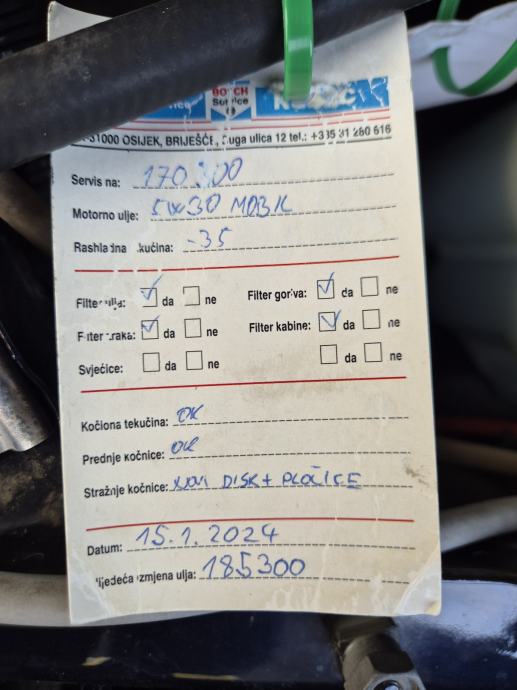 BOSCH
Service
31000 OSIJEK, BRIJEŠĆE, Duga ulica 12 tel.: +385 31 280 616
Servis na: 170 300
Motorno ulje: 5W30 MOBIL
Rashladna tekućina: -35
Filter ulja: da ne Filter goriva: da ne
Filter zraka: da ne Filter kabine: da ne
Svjećice: da ne da ne
Kočiona tekućina: OK
Prednje kočnice: OK
Stražnje kočnice: NOVI DISK + PLOČICE
Datum: 15.1.2024
Sljedeća izmjena ulja: 185300